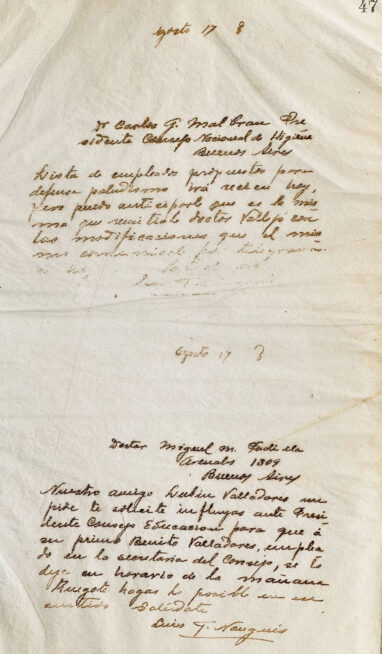 47
Agosto 17 8
Dr Carlos G. Malbran Pre
sidente Consejo Nacional de Higiene
Buenos Aires
Lista de empleados propuestos para
defensa paludismo irá recien hoy,
pero puedo anticiparle que es la mis
ma que remitió el doctor Vallejo con
las modificaciones que el mis
mo comunicó por
Agosto 17 8
Doctor Miguel M. Padilla
Arenales 1809
Buenos Aires
Nuestro amigo Lubin Valladares me
pide te solicite influyas ante Presi
dente Consejo Educacion para que á
su primo Benito Valladares, emplea
do en la secretaria del Consejo, se le
deje en horario de la mañana
Ruegote hagas lo posible en ese
sentido
Luis F. Nougués